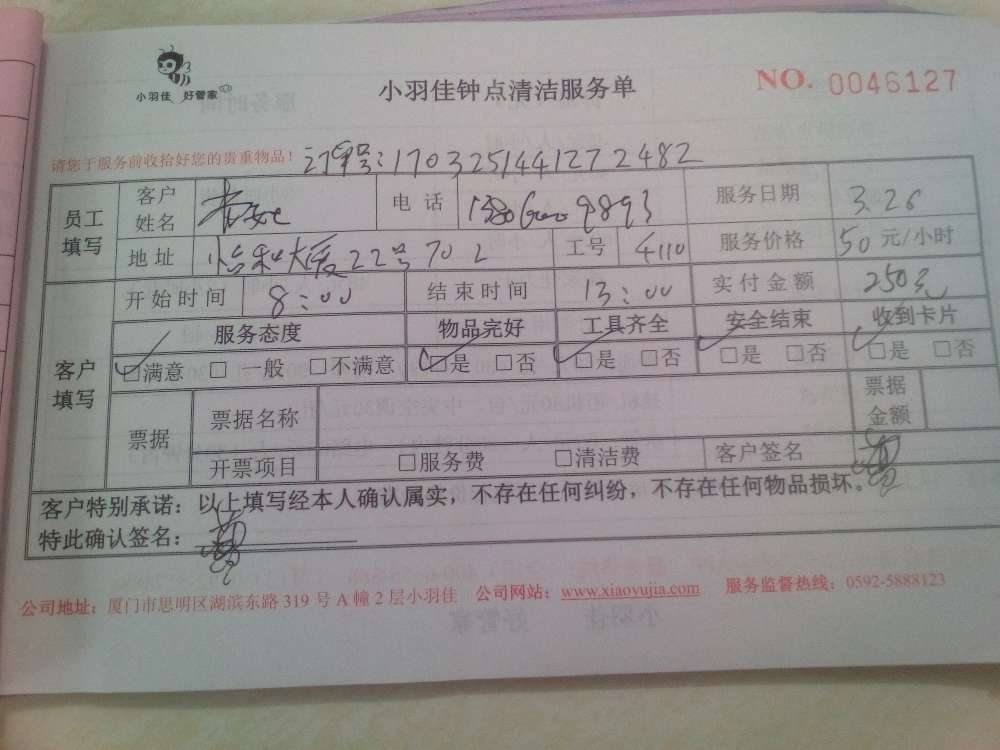 小羽佳 好管家
小羽佳钟点清洁服务单
NO. 0046127
请您于服务前收拾好您的贵重物品！ 订单号：1703251441272482
员工填写 客户姓名 电话 服务日期 3.26
地址 怡和大厦22号702 工号 4110 服务价格 50 元/小时
客户填写 开始时间 8：00 结束时间 13：00 实付金额 250元
服务态度 物品完好 工具齐全 安全结束 收到卡片
☑满意 □一般 □不满意 ☑是 □否 ☑是 □否 ☑是 □否 ☑是 □否
票据 票据名称 票据金额
开票项目 □服务费 □清洁费 客户签名
客户特别承诺：以上填写经本人确认属实，不存在任何纠纷，不存在任何物品损坏。
特此确认签名：
公司地址：厦门市思明区湖滨东路 319 号 A 幢 2 层小羽佳 公司网站：www.xiaoyujia.com 服务监督热线：0592-5888123